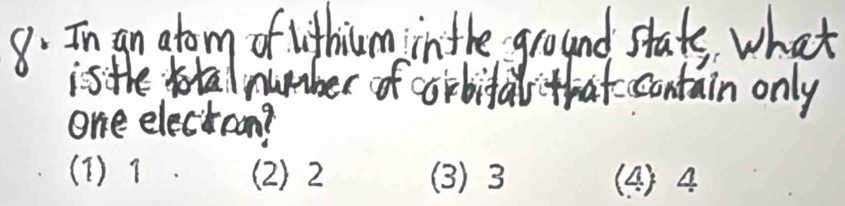 8. In an atom of lithium in the ground state, what
is the total number of orbitals that contain only
one electron?
(1) 1 (2) 2 (3) 3 (4) 4